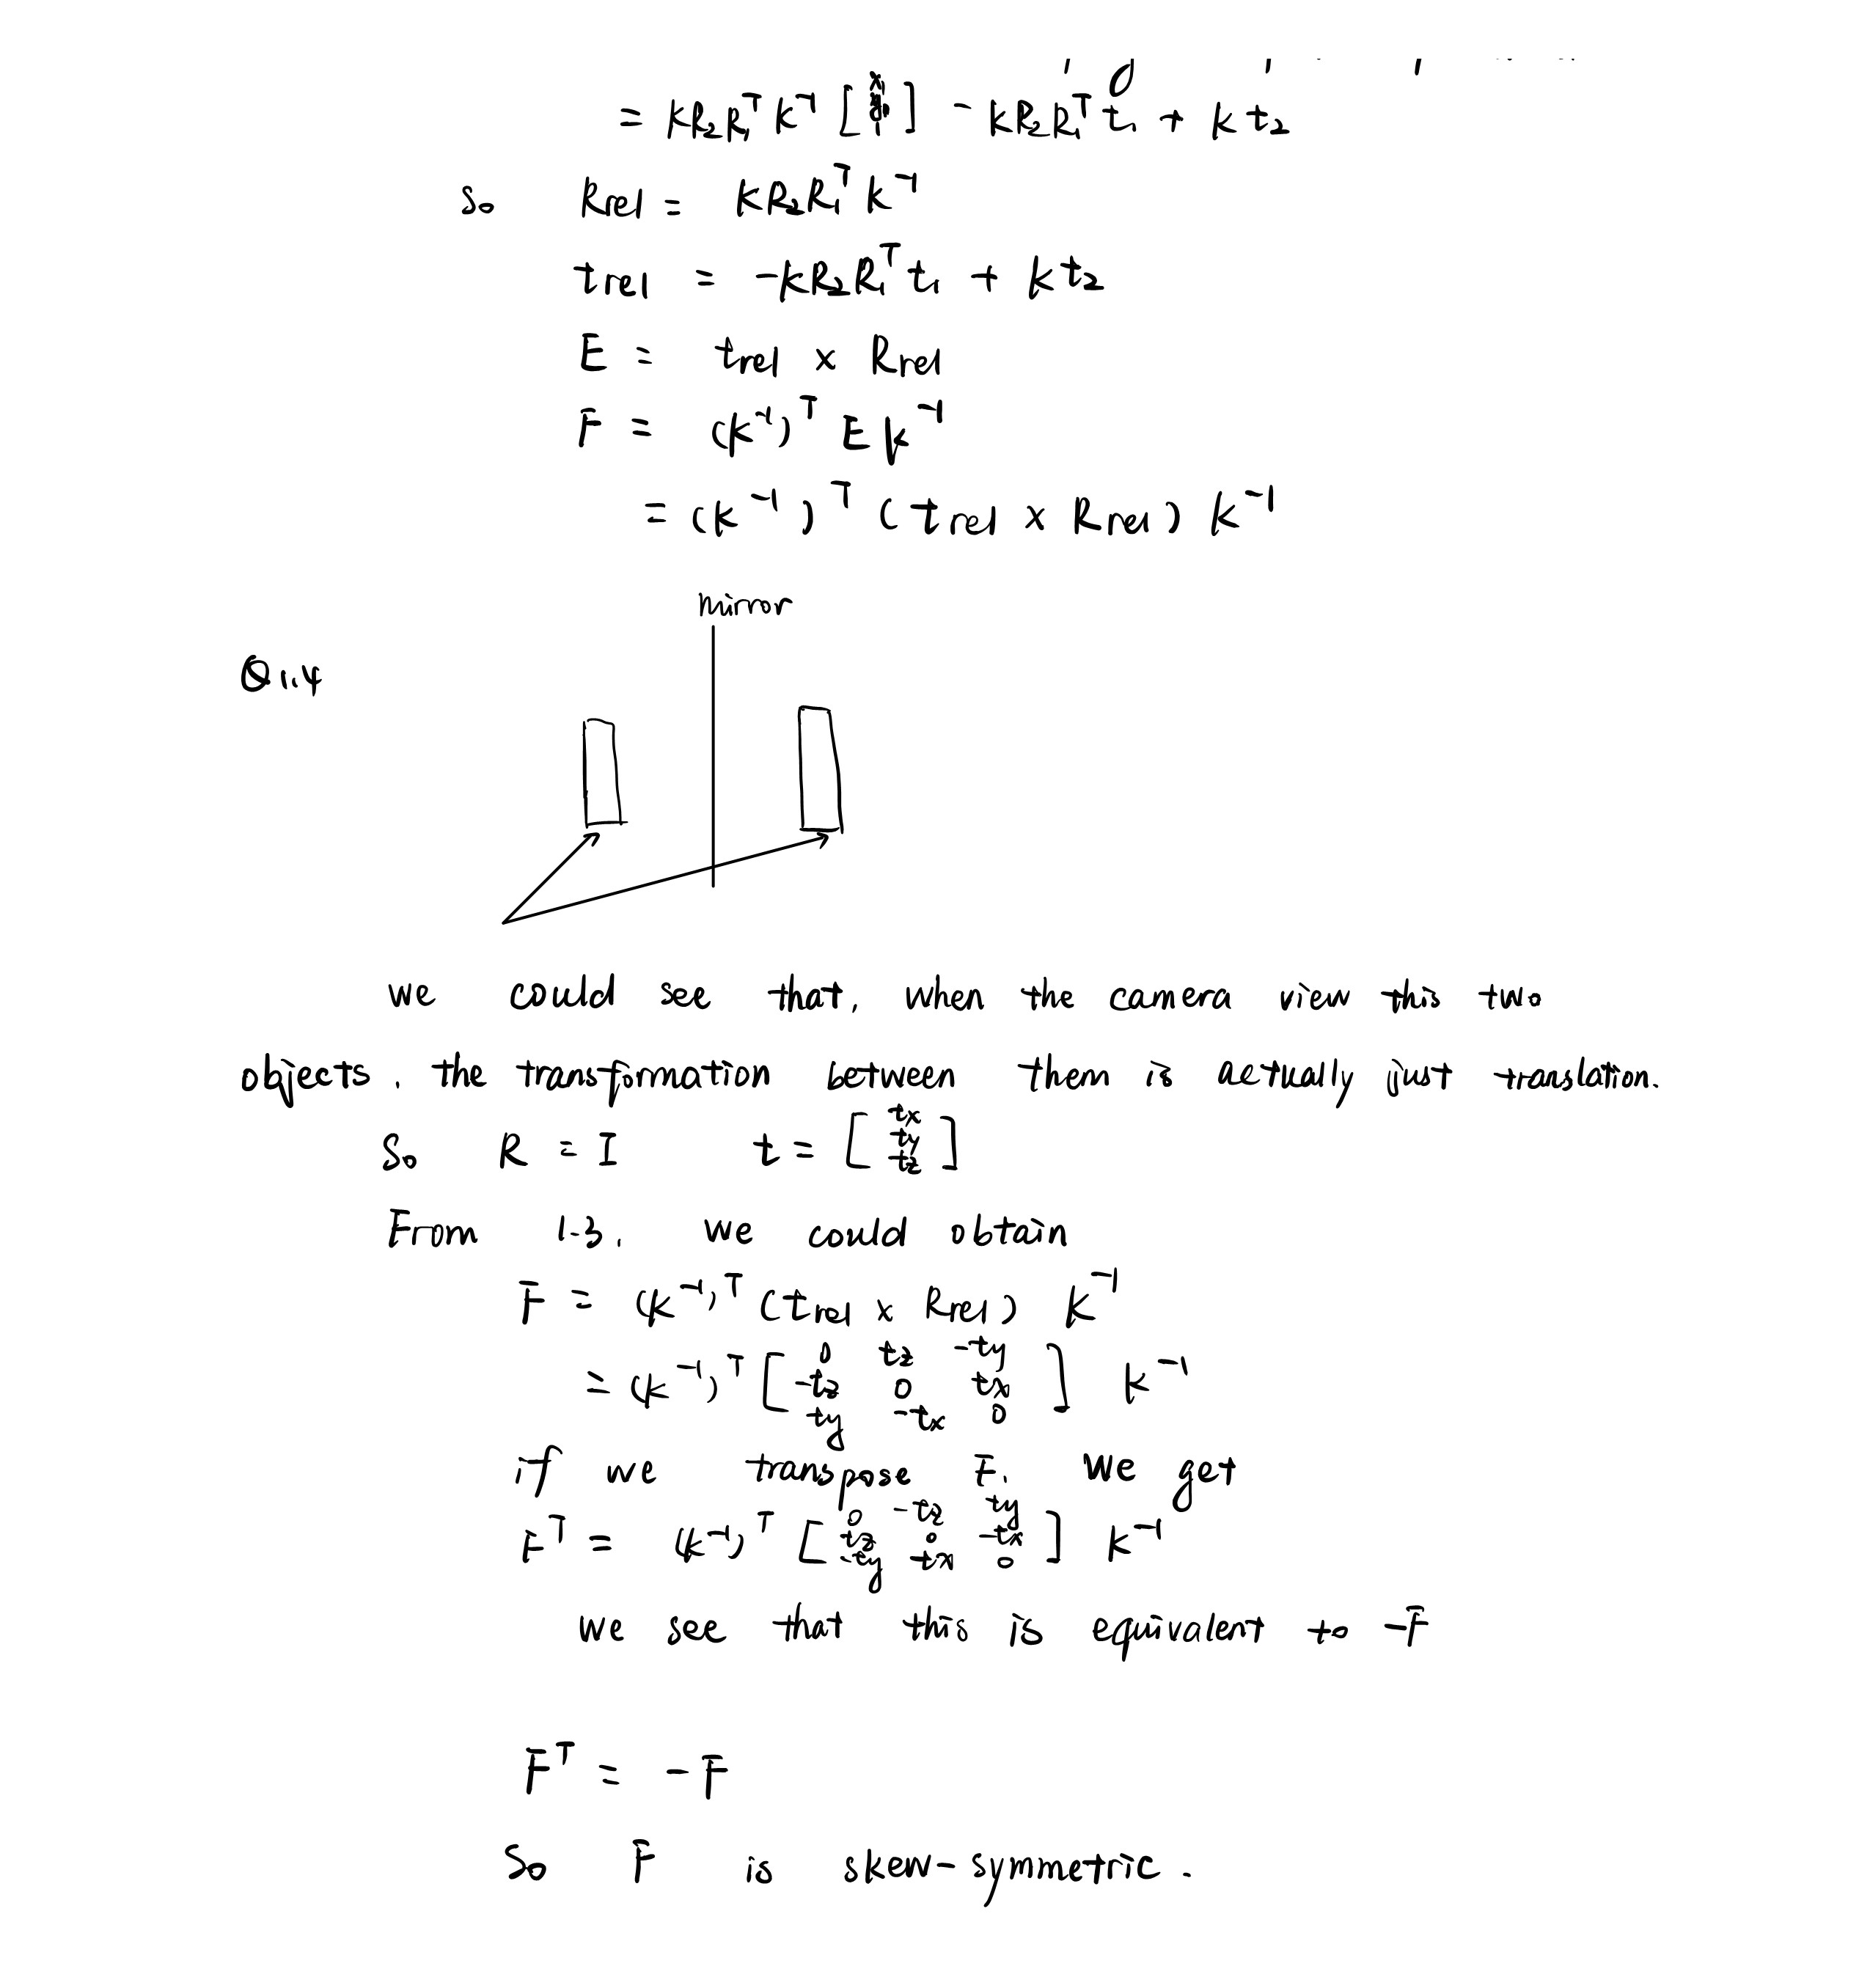 = KR₂R₁ᵀK⁻¹ [x₁ y₁ 1] - KR₂R₁ᵀt₁ + Kt₂
So Rrel = KR₂R₁ᵀK⁻¹
trel = -KR₂R₁ᵀt₁ + Kt₂
E = trel × Rrel
F = (K⁻¹)ᵀ E K⁻¹
= (K⁻¹)ᵀ (trel × Rrel) K⁻¹
mirror
Q1.4
we could see that, when the camera view this two
objects, the transformation between them is actually just translation.
So R = I t = [tx ty tz]
From 1.3, we could obtain
F = (K⁻¹)ᵀ (trel × Rrel) K⁻¹
= (K⁻¹)ᵀ [0 tz -ty; -tz 0 tx; ty -tx 0] K⁻¹
if we transpose F, we get
Fᵀ = (K⁻¹)ᵀ [0 -tz ty; tz 0 -tx; -ty tx 0] K⁻¹
we see that this is equivalent to -F
Fᵀ = -F
So F is skew-symmetric.